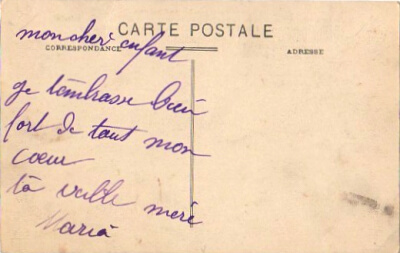 CARTE POSTALE
CORRESPONDANCE
ADRESSE
mon cheri enfant
je t'embrasse bien
fort de tout mon
coeur
ta veille meré
Maria